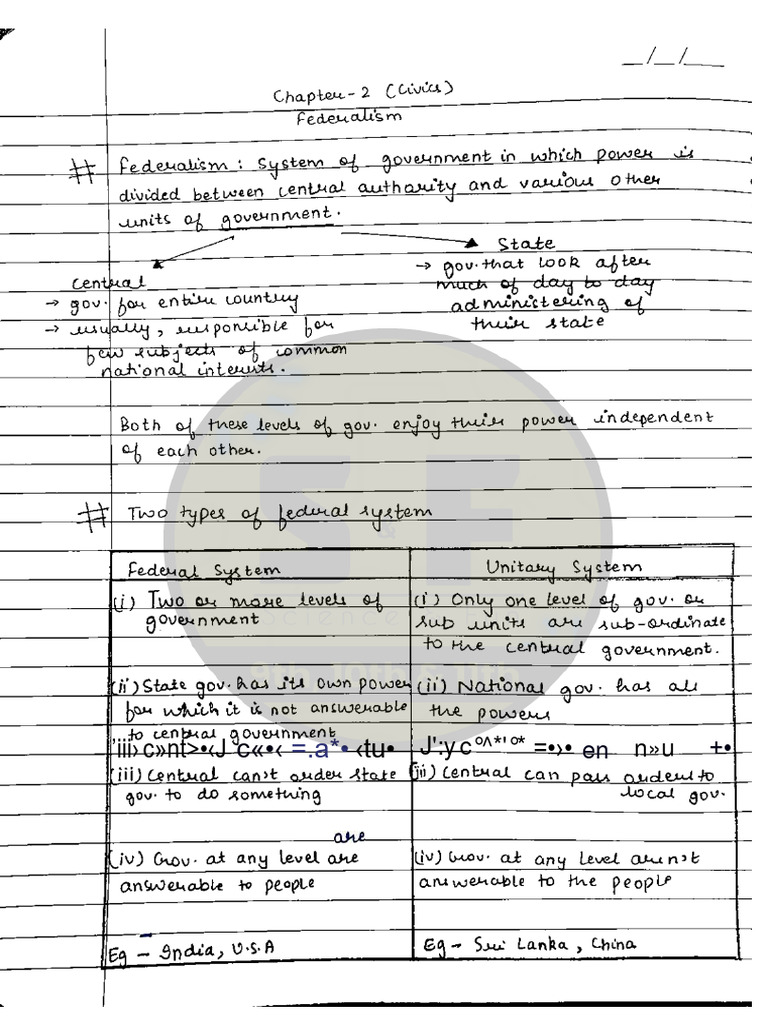 _/_/__
Chapter-2 (Civics)
Federalism
# Federalism: System of government in which power is
divided between central authority and various other
units of government.
Central
→ gov. for entire country
→ usually, responsible for
few subjects of common
national interests.
State
→ gov. that look after
much of day to day
administering of
their state
Both of these levels of gov. enjoy their power independent
of each other.
# Two types of federal system
Federal System
(i) Two or more levels of
government
(ii) State gov. has its own power
for which it is not answerable
to central government
(iii) Central can't order state
gov. to do something
are
(iv) Gov. at any level are
answerable to people
Eg - India, U.S.A
Unitary System
(i) Only one level of gov. or
sub units are sub-ordinate
to the central government.
(ii) National gov. has all
the powers
(iii) Central can pass orders to
local gov.
(iv) Gov. at any level aren't
answerable to the people
Eg - Sri Lanka, China